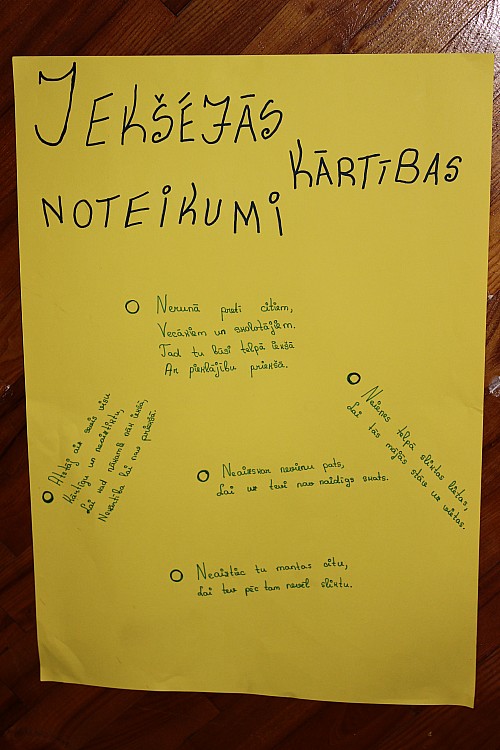 IEKŠĒJĀS
KĀRTĪBAS
NOTEIKUMI
Nerunā pretī citiem,
Vecākiem un skolotājiem.
Tad tu būsi telpā iekšā
Ar pieklājību priekšā.
Neienes telpā sliktas lietas,
Lai tās mājās stāv uz vietas.
Atstāj aiz sevis visu
Kārtīgu un neaiztiktu,
Lai kad nākamie nāk iekšā,
Nekārtība lai nav priekšā.
Neaizskar nevienu pats,
Lai uz tevi nav naidīgs skats.
Neaiztiec tu mantas citu,
Lai tev pēc tam nevēl sliktu.